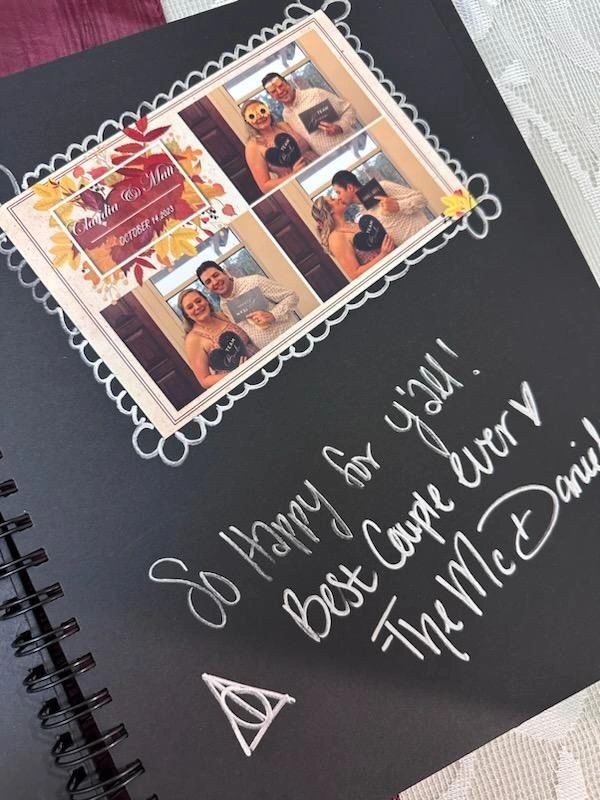 Claudia & Matt
OCTOBER 14, 2023
TEAM
TEAM
TEAM
So Happy for y'all!
Best Couple ever ♥
-The McDaniel